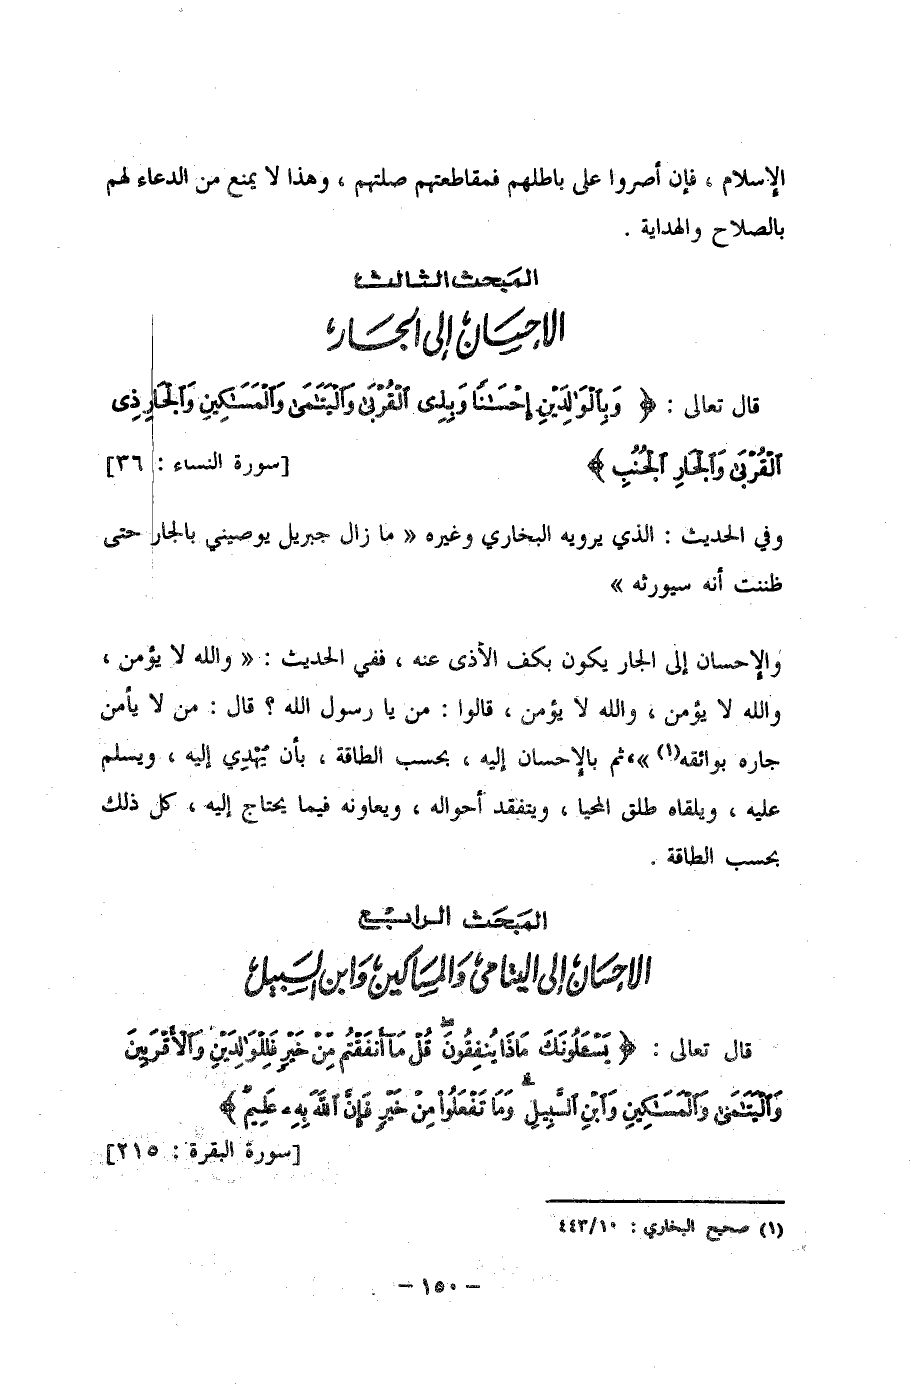 الإسلام ، فإن أصروا على باطلهم فمقاطعتهم صلتهم ، وهذا لا يمنع من الدعاء لهم
بالصلاح والهداية .
المبحث الثالث
الإحسان إلى الجار
قال تعالى : ﴿ وَبِٱلْوَٰلِدَيْنِ إِحْسَٰنًا وَبِذِى ٱلْقُرْبَىٰ وَٱلْيَتَٰمَىٰ وَٱلْمَسَٰكِينِ وَٱلْجَارِ ذِى
ٱلْقُرْبَىٰ وَٱلْجَارِ ٱلْجُنُبِ ﴾ [سورة النساء : ٣٦]
وفي الحديث : الذي يرويه البخاري وغيره « ما زال جبريل يوصيني بالجار حتى
ظننت أنه سيورثه »
والإحسان إلى الجار يكون بكف الأذى عنه ، ففي الحديث : « والله لا يؤمن ،
والله لا يؤمن ، والله لا يؤمن ، قالوا : من يا رسول الله ؟ قال : من لا يأمن
جاره بوائقه(١) »، ثم بالإحسان إليه ، بحسب الطاقة ، بأن يُهْدِي إليه ، ويسلم
عليه ، ويلقاه طلق المحيا ، ويتفقد أحواله ، ويعاونه فيما يحتاج إليه ، كل ذلك
بحسب الطاقة .
المبحث الرابع
الإحسان إلى اليتامى والمساكين وابن السبيل
قال تعالى : ﴿ يَسْـَٔلُونَكَ مَاذَا يُنفِقُونَ ۖ قُلْ مَآ أَنفَقْتُم مِّنْ خَيْرٍ فَلِلْوَٰلِدَيْنِ وَٱلْأَقْرَبِينَ
وَٱلْيَتَٰمَىٰ وَٱلْمَسَٰكِينِ وَٱبْنِ ٱلسَّبِيلِ ۗ وَمَا تَفْعَلُوا۟ مِنْ خَيْرٍ فَإِنَّ ٱللَّهَ بِهِۦ عَلِيمٌ ﴾
[سورة البقرة : ٢١٥]
(١) صحيح البخاري : ٤٤٣/١٠
- ١٥٠ -